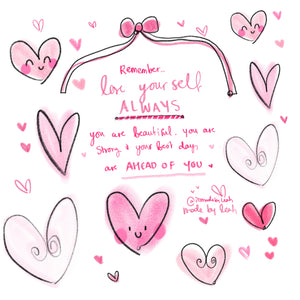 Remember...
love yourself
ALWAYS
you are beautiful. you are
strong & your best days
are AHEAD OF YOU
made by leah